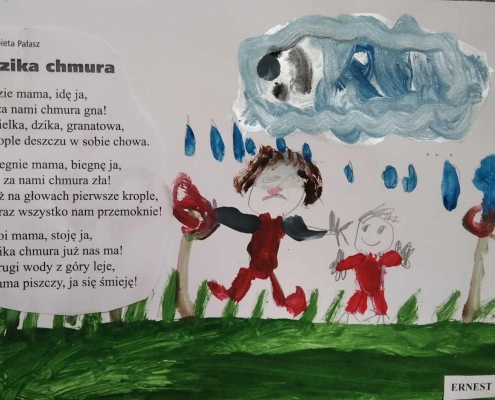 ieta Pałasz
zika chmura
zie mama, idę ja,
za nami chmura gna!
ielka, dzika, granatowa,
ople deszczu w sobie chowa.
iegnie mama, biegnę ja,
za nami chmura zła!
ż na głowach pierwsze krople,
raz wszystko nam przemoknie!
oi mama, stoję ja,
zika chmura już nas ma!
rugi wody z góry leje,
ama piszczy, ja się śmieję!
ERNEST